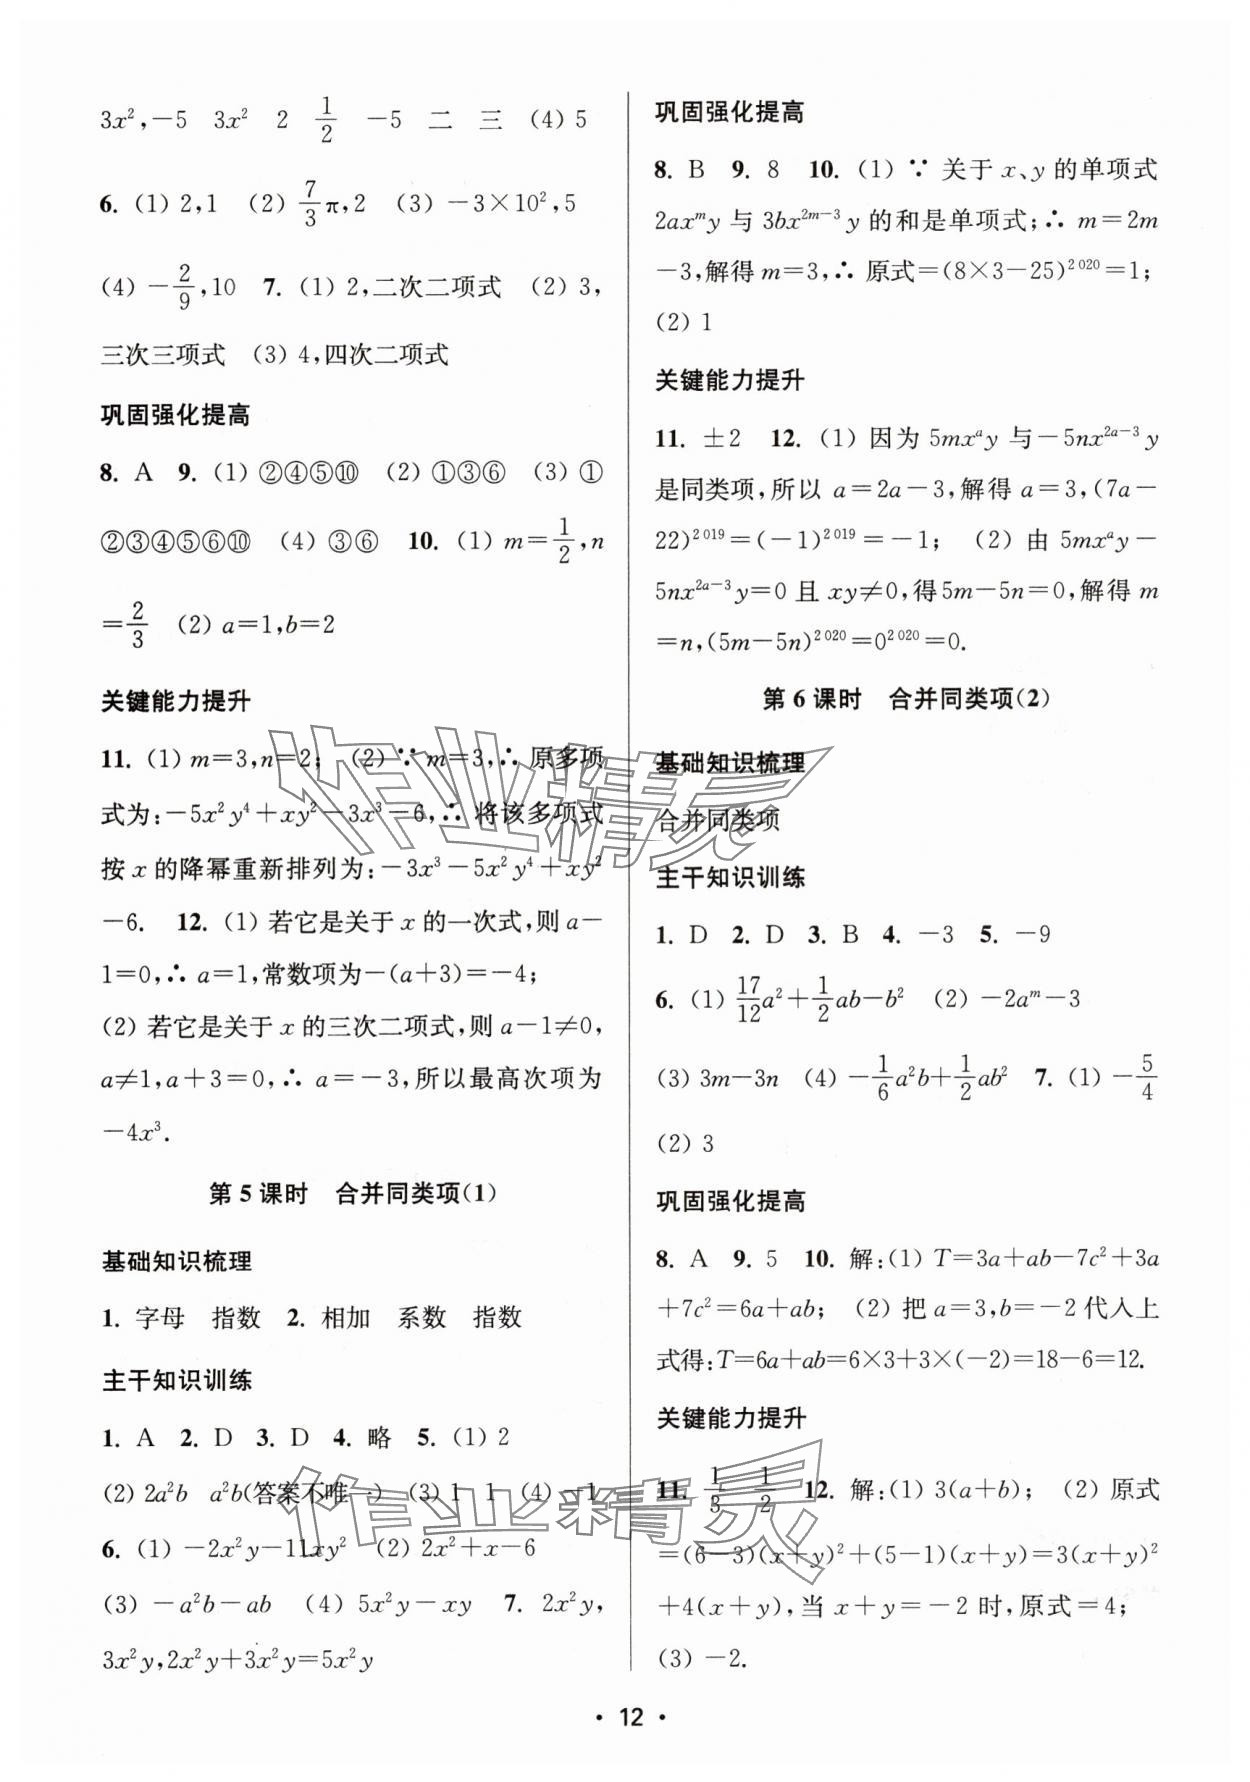 3x²,−5 3x² 2 1/2 −5 二 三 (4) 5
6. (1) 2,1 (2) 7/3π,2 (3) −3×10²,5
(4) −2/9,10 7. (1) 2,二次二项式 (2) 3,
三次三项式 (3) 4,四次二项式
巩固强化提高
8. A 9. (1) ②④⑤⑩ (2) ①③⑥ (3) ①
②③④⑤⑥⑩ (4) ③⑥ 10. (1) m=1/2,n
=2/3 (2) a=1,b=2
关键能力提升
11. (1) m=3,n=2; (2) ∵ m=3,∴ 原多项
式为:−5x²y⁴+xy²−3x³=6,∴ 将该多项式
按 x 的降幂重新排列为:−3x³−5x²y⁴+xy²
−6. 12. (1) 若它是关于 x 的一次式,则 a−
1=0,∴ a=1,常数项为−(a+3)=−4;
(2) 若它是关于 x 的三次二项式,则 a−1≠0,
a≠1,a+3=0,∴ a=−3,所以最高次项为
−4x³.
第 5 课时 合并同类项(1)
基础知识梳理
1. 字母 指数 2. 相加 系数 指数
主干知识训练
1. A 2. D 3. D 4. 略 5. (1) 2
(2) 2a²b a²b(答案不唯一) (3) 1 1 (4) −1
6. (1) −2x²y−11xy² (2) 2x²+x−6
(3) −a²b−ab (4) 5x²y−xy 7. 2x²y,
3x²y,2x²y+3x²y=5x²y
巩固强化提高
8. B 9. 8 10. (1) ∵ 关于 x、y 的单项式
2axᵐy 与 3bx²ᵐ⁻³y 的和是单项式;∴ m=2m
−3,解得 m=3,∴ 原式=(8×3−25)²⁰²⁰=1;
(2) 1
关键能力提升
11. ±2 12. (1) 因为 5mxᵃy 与−5nx²ᵃ⁻³y
是同类项,所以 a=2a−3,解得 a=3,(7a−
22)²⁰¹⁹=(−1)²⁰¹⁹=−1; (2) 由 5mxᵃy−
5nx²ᵃ⁻³y=0 且 xy≠0,得5m−5n=0,解得 m
=n,(5m−5n)²⁰²⁰=0²⁰²⁰=0.
第 6 课时 合并同类项(2)
基础知识梳理
合并同类项
主干知识训练
1. D 2. D 3. B 4. −3 5. −9
6. (1) 17/12a²+1/2ab−b² (2) −2aᵐ−3
(3) 3m−3n (4) −1/6a²b+1/2ab² 7. (1) −5/4
(2) 3
巩固强化提高
8. A 9. 5 10. 解:(1) T=3a+ab−7c²+3a
+7c²=6a+ab; (2) 把 a=3,b=−2代入上
式得:T=6a+ab=6×3+3×(−2)=18−6=12.
关键能力提升
11. 1/3 1/2 12. 解:(1) 3(a+b); (2) 原式
=(6−3)(x+y)²+(5−1)(x+y)=3(x+y)²
+4(x+y),当 x+y=−2 时,原式=4;
(3) −2.
• 12 •
作业精灵
作业精灵